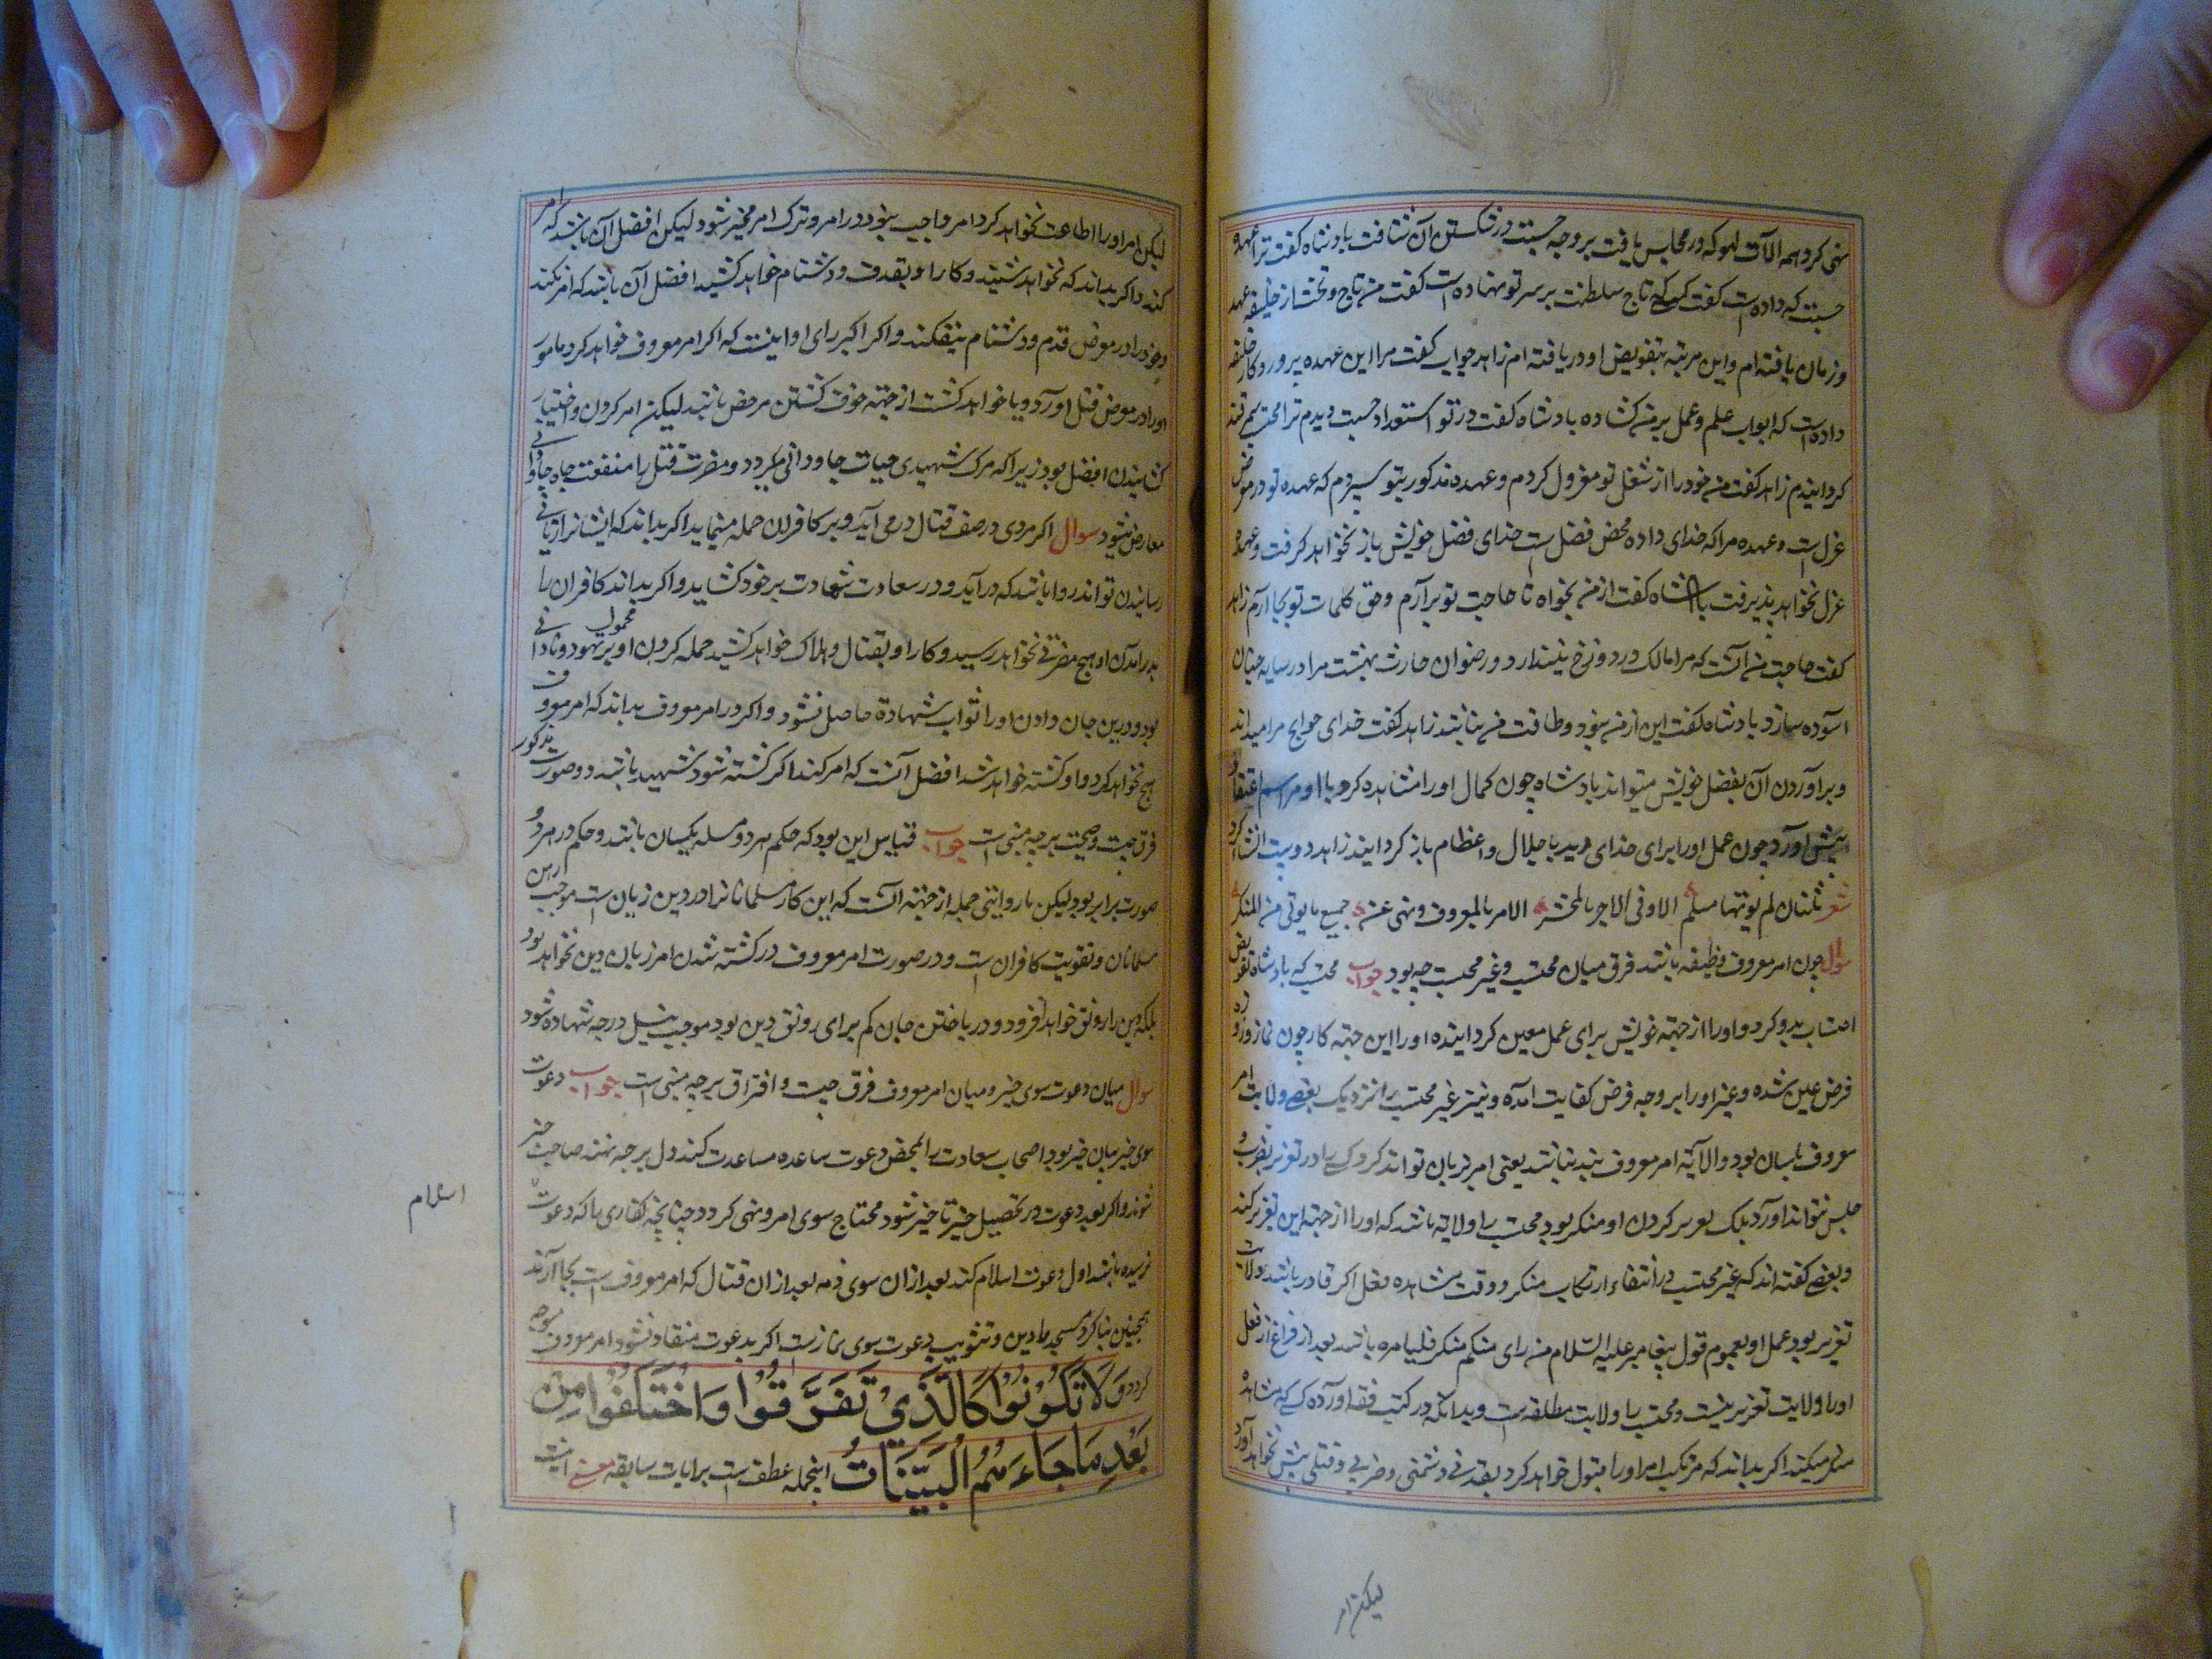 نهی کرد همه الآت لهو که در مجلس یافت بر وجه حسبت در شکستن آن شتافت بادشاه کفت ترا عهده
حسبت که داده است کفت کسی که تاج سلطنت بر سر تو نهاده است کفت من تاج و تخت از خلیفه عهد
و زمان یافته ام و این مرتبه بتفویض او دریافته ام زاهد جواب کفت مرا این عهده پروردکار خلیفه
داده است که ابواب علم و عمل بر من کشاده بادشاه کفت در تو استعداد حسبت دیدم ترا محتسب
کردانیدم زاهد کفت من خود را از شغل تو معزول کردم و عهده مذکور بتو سپردم که عهده تو در معرض
عزل است و عهده مرا که خدای داده محض فضل است خدای فضل خویش باز نخواهد کرفت و عهده
عزل نخواهد پذیرفت بادشاه کفت از من بخواه تا حاجت تو برآرم و حق کلمات تو بجا آرم زاهد
کفت حاجت من آنست که مرا مالک در دوزخ نیندازد و رضوان حارث بهشت مرا در سایه جنان
آسوده سازد بادشاه کفت این از من نبود و طاقت من نباشد زاهد کفت خدای حوایج مرا میداند
و برآوردن آن بفضل خویش میتواند بادشاه چون کمال او را مشاهده کرد با او مراسم اعتقاد
پیش آورد چون عمل او را برای خدای دید با جلال و اعظام باز کردانید زاهد دو بیت انشا کرد
شعر ثنتان لم یوتهما مسلم الا وفی الاجر بالمحشر الامر بالمعروف ونهی عن جمیع ما یوتی من المنکر
سوال چون امر معروف وظیفه باشد فرق میان محتسب و غیر محتسب چه بود جواب محتسب که بادشاه تفویض
احتساب بدو کرد و او را از جهته خویش برای عمل معین کردانیده او را این جهته کار چون نماز و روزه
فرض عین شده و غیر او را بر وجه فرض کفایت آمده و نیز غیر محتسب را نزدیک بعضی ولایت امر
معروف بلسان بود و الا یه امر معروف بید نباشد یعنی امر بزبان تواند کرد و کسی را در تعزیر بضرب و
حبس نتواند آورد بلک تعزیر کردن او منکر بود محتسب را ولایة باشد که او را از جهته این تعزیر کند
و بعضی کفته اند که غیر محتسب در انتفاء ارتکاب منکر و وقت مشاهده فعل اکر قادر باشد ولایت
تعزیر بود عمل او بعموم قول پیغامبر علیه السلام من رای منکم منکرا فلیامره باشد بعد از فراغ از فعل
او را ولایت تعزیر نیست و محتسب را ولایت مطلقه است و بدانکه در کتب فقه آورده کسی که مشاهده
منکر میکند اکر بداند که مرتکب امر او را قبول خواهد کرد بقذفی و شتمی و ضربی و قتلی پیش نخواهد آورد
لیکن امر
لیکن امر او را اطاعت نخواهد کرد امر واجب نبود در امر و ترک امر مخیر شود لیکن افضل آن باشد که امر
کند و اکر بداند که نخواهد شنید و کار او بقدف و دشنام خواهد کشید افضل آن باشد که امر نکند
و خود را در معرض قدم و دشنام نیفکند و اکر اکبر رای او اینست که اکر امر معروف خواهد کرد مامور
او را در معرض قتل آورد و یا خواهد کشت از جهته خوف کشتن مرخص باشد لیکن امر کردن و اختیار
کشانیدن افضل بود زیرا که مرک شهیدی حیات جاودانی میکردد و مضرت قتل را منفعت جاه جاودانی
معارض نشود سوال اکر مردی در صف قتال در می آید و بر کافران حمله مینماید اکر بداند که ایشانرا زیانی
رسانیدن تواند روا باشد که در آید و در سعادت شهادت بر خود کشاید و اکر بداند کافران را
بدرآمدن او هیچ مضرتی نخواهد رسید و کار او بقتال و هلاک خواهد کشید حمله کردن او بر تهود محمول و نادانی
بود و درین جان دادن او را ثواب شهادة حاصل نشود و اکر در امر معروف بداند که امر معروف
هیچ نخواهد کرد و او کشته خواهد شد افضل آنست که امر کند اکر کشته شود شهید باشد دو صورت مذکور
فرق چیست و صحیت بر چه مبنی است جواب قیاس این بود که حکم هر دو مسله یکسان باشد و حکم در هر دو
صورت برابر بود لیکن ناروایتی حمله از جهته آنست که این کار مسلمانانرا در دین زیان است موجب وهن
مسلمانان و تقویت کافران است و در صورت امر معروف در کشته شدن امر زیان دین نخواهد بود
بلکه دین را رونق خواهد افزود و در باختن جان کم برای رونق دین بود موجب نیل درجه شهاده شود
سوال میان دعوت سوی خیر و میان امر معروف فرق چیست و افتراق بر چه مبنی است جواب دعوت
سوی خیر بیان خیر بود اصحاب سعادت را بمحض دعوت ساعده مساعدت کند دل بر چه نهند صاحب خیر
شوند و اکر بعد دعوت در تحصیل خیر تاخیر شود محتاج سوی امر و نهی کردد چنانچه کفاری را که دعوت
اسلام
نرسیده باشد اول دعوت اسلام کنند بعد از ان سوی ذمه بعد از ان قتال که امر معروف است بجا آرند
همچنین بنا کرد مسجد و ماذین و تثویب دعوت سوی نماز است اکر بدعوت منقاد نشود امر معروف متوجه
کردد وَلَا تَكُونُوْا كَالَّذِيْ تَفَرَّقُوْا وَاخْتَلَفُوْا مِنْ
بَعْدِ مَا جَاءَهُمُ الْبَيِّنَاتُ اینجمله عطف است بر ایات سابقه معنی اینست